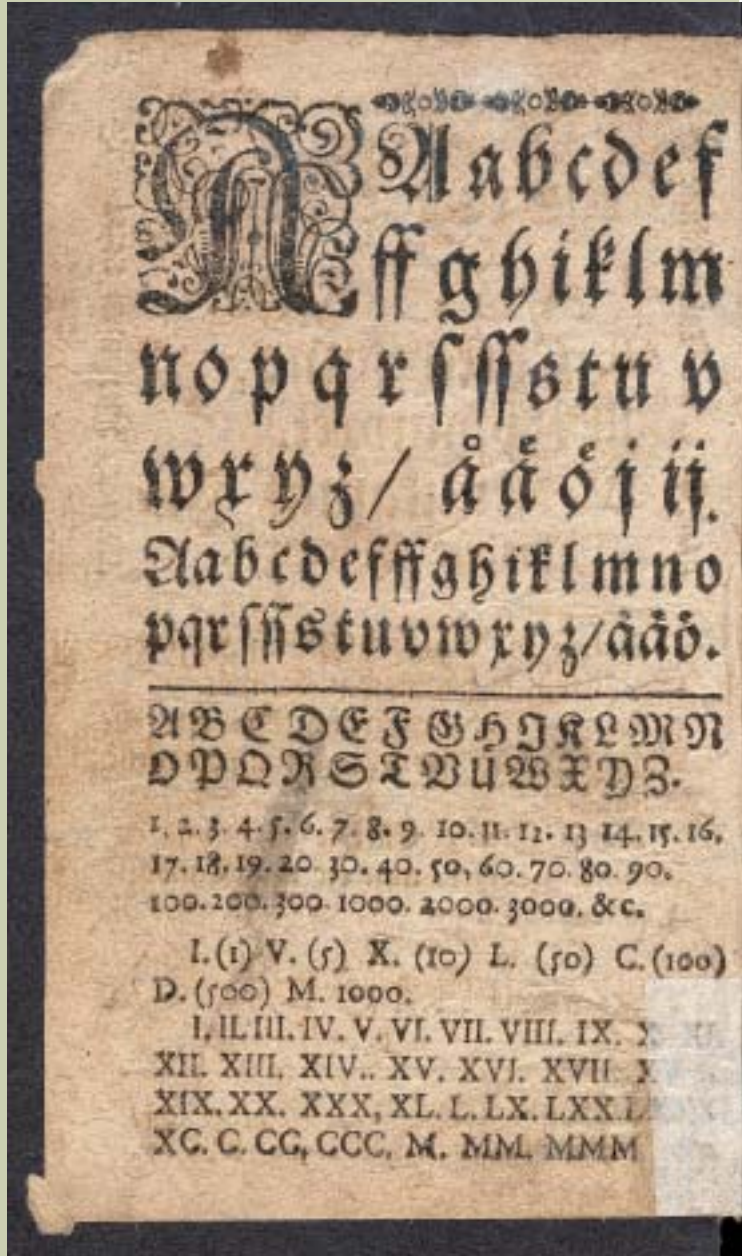 A A a b c d e f
ff g h i k l m
n o p q r ſ ſſ s t u v
w x y z / å ä ö j ij.
A a b c d e f ff g h i k l m n o
p q r ſ ſſ s t u v w x y z / å ä ö.
A B C D E F G H J K L M N
O P Q R S T V U W X Y Z.
1. 2. 3. 4. 5. 6. 7. 8. 9. 10. 11. 12. 13 14. 15. 16.
17. 18. 19. 20 30. 40. 50, 60. 70. 80. 90.
100. 200. 300. 1000. 2000. 3000. &c.
I. (1) V. (5) X. (10) L. (50) C. (100)
D. (500) M. 1000.
I. II. III. IV. V. VI. VII. VIII. IX.
XII. XIII. XIV.. XV. XVI. XVII
XIX. XX. XXX, XL. L. LX. LXX.
XC. C. CC, CCC. M. MM. MMM